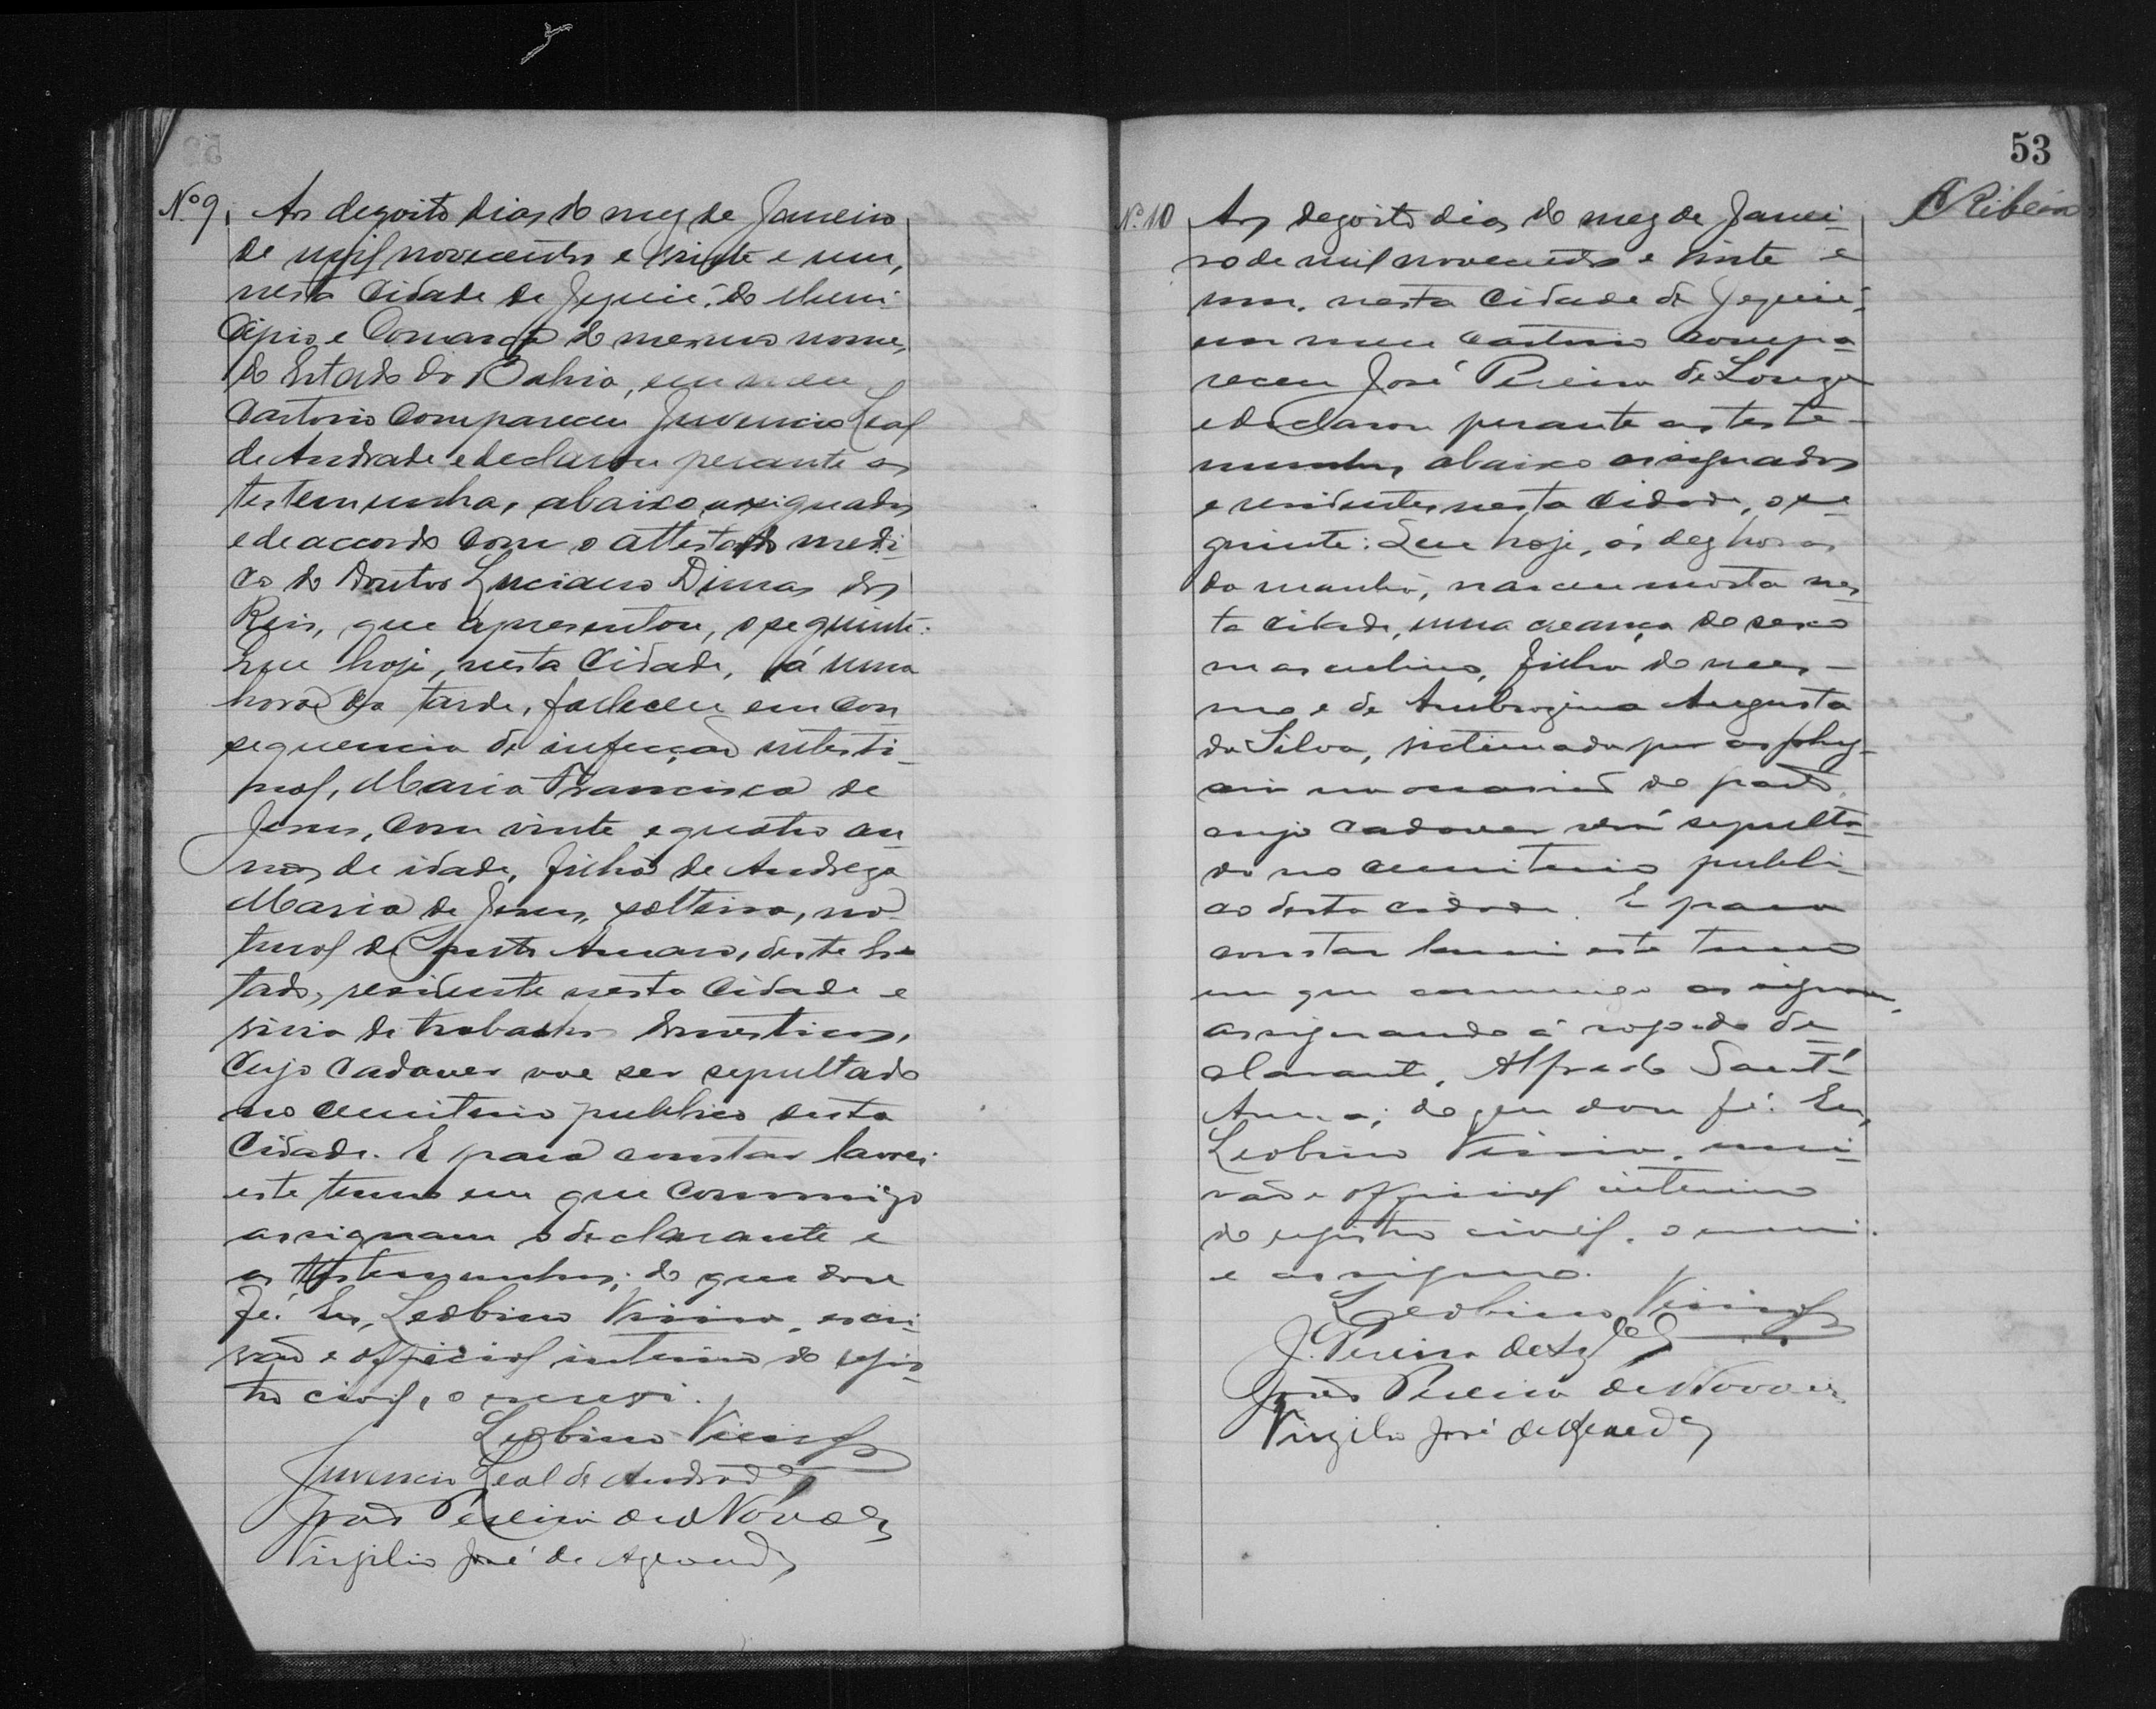 Nº 9. Aos dezoito dias do mez de Janeiro
de mil novecentos e vinte e um,
nesta Cidade de Jequié, do Muni-
cipio e Comarca do mesmo nome,
do Estado da Bahia, em meu
Cartorio compareceu Juvencio Leal
de Andrade e declarou perante as
testemunhas, abaixo assignadas
e de accordo com o attestado medi-
co do doutor Luciano Dimas dos
Reis, que apresentou, o seguinte:
Que hoje, nesta Cidade, á uma
hora da tarde, falleceu em con-
sequencia de infecção intesti-
nal, Maria Francisca de
Jesus, com vinte e quatro an-
nos de idade, filha de Andreza
Maria de Jesus, solteira, na-
tural de Santo Amaro, deste Es-
tado, residente nesta Cidade e
vivia de trabalhos domesticos,
cujo cadaver vae ser sepultado
no cemiterio publico desta
Cidade. E para constar lavrei
este termo em que commigo
assignam o declarante e
as testemunhas; do que dou
fé. Eu, Leobino Vieira, escri-
vão e official interino do regis-
tro civil, o escrevi.
Leobino Vieira
Juvencio Leal de Andrade
João Pereira de Novaes
Virgilio José de Azevedo
53
Ribeiro
Nº 10 Aos dezoito dias do mez de Janei-
ro de mil novecentos e vinte e
um, nesta Cidade de Jequié,
em meu cartorio compa-
receu José Pereira de Souza
e declarou perante as teste-
munhas, abaixo assignadas
e residentes nesta Cidade, o se-
guinte: Que hoje, ás dez horas
da manhã, nasceu morta nes-
ta cidade, uma creança do sexo
masculino, filha do mes-
mo e de Ambrozina Augusta
da Silva, victimada por asphy-
xia na occasião do parto,
cujo cadaver será sepulta-
do no cemiterio publi-
co desta cidade. E para
constar lavrei este termo
em que commigo assignam,
assignando á rogo do de-
clarante, Alfredo Sant'
Anna; do que dou fé. Eu,
Leobino Vieira, escri-
vão e official interino
do registro civil, o escrevi
e assigno.
Leobino Vieira
J. Pereira de
João Pereira de Novaes
Virgilio José de Azevedo